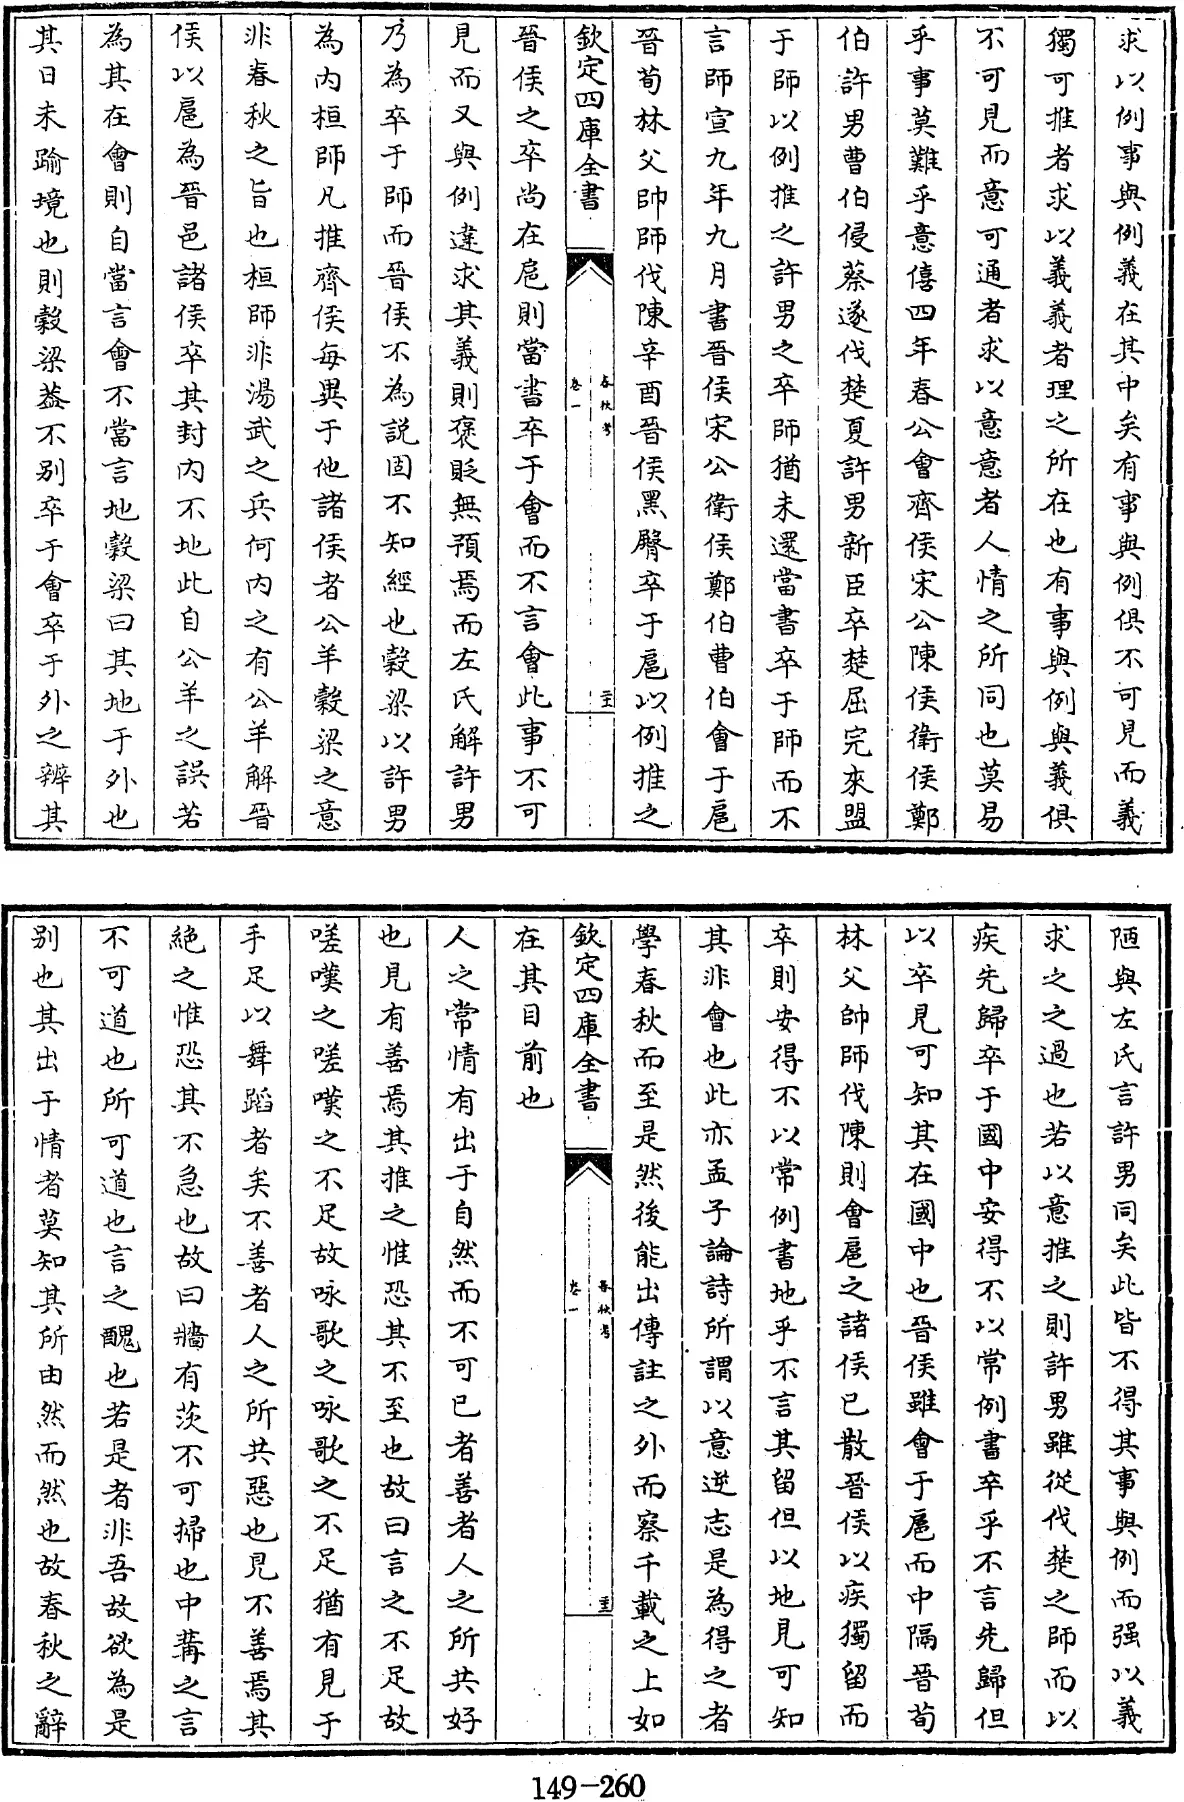 求以例事與例義在其中矣有事與例俱不可見而義
獨可推者求以義義者理之所在也有事與例與義俱
不可見而意可通者求以意意者人情之所同也莫易
乎事莫難乎意僖四年春公會齊侯宋公陳侯衛侯鄭
伯許男曹伯侵蔡遂伐楚夏許男新臣卒楚屈完來盟
于師以例推之許男之卒師猶未還當書卒于師而不
言師宣九年九月書晉侯宋公衛侯鄭伯曹伯會于扈
晉荀林父帥師伐陳辛酉晉侯黑臀卒于扈以例推之
欽定四庫全書
春秋考
卷一
晉侯之卒尚在扈則當書卒于會而不言會此事不可
見而又與例違求其義則褒貶無預焉而左氏解許男
乃為卒于師而晉侯不為説固不知經也榖梁以許男
為内桓師凡推齊侯每異于他諸侯者公羊榖梁之意
非春秋之旨也桓師非湯武之兵何内之有公羊解晉
侯以扈為晉邑諸侯卒其封内不地此自公羊之誤若
為其在會則自當言會不當言地榖梁曰其地于外也
其日未踰境也則榖梁葢不别卒于會卒于外之辨其
陋與左氏言許男同矣此皆不得其事與例而强以義
求之之過也若以意推之則許男雖從伐楚之師而以
疾先歸卒于國中安得不以常例書卒乎不言先歸但
以卒見可知其在國中也晉侯雖會于扈而中隔晉荀
林父帥師伐陳則會扈之諸侯已散晉侯以疾獨留而
卒則安得不以常例書地乎不言其留但以地見可知
其非會也此亦孟子論詩所謂以意逆志是為得之者
學春秋而至是然後能出傳註之外而察千載之上如
欽定四庫全書
春秋考
卷一
在其目前也
人之常情有出于自然而不可已者善者人之所共好
也見有善焉其推之惟恐其不至也故曰言之不足故
嗟嘆之嗟嘆之不足故咏歌之咏歌之不足猶有見于
手足以舞蹈者矣不善者人之所共惡也見不善焉其
絶之惟恐其不急也故曰牆有茨不可掃也中冓之言
不可道也所可道也言之醜也若是者非吾故欲為是
别也其出于情者莫知其所由然而然也故春秋之辭
149-260